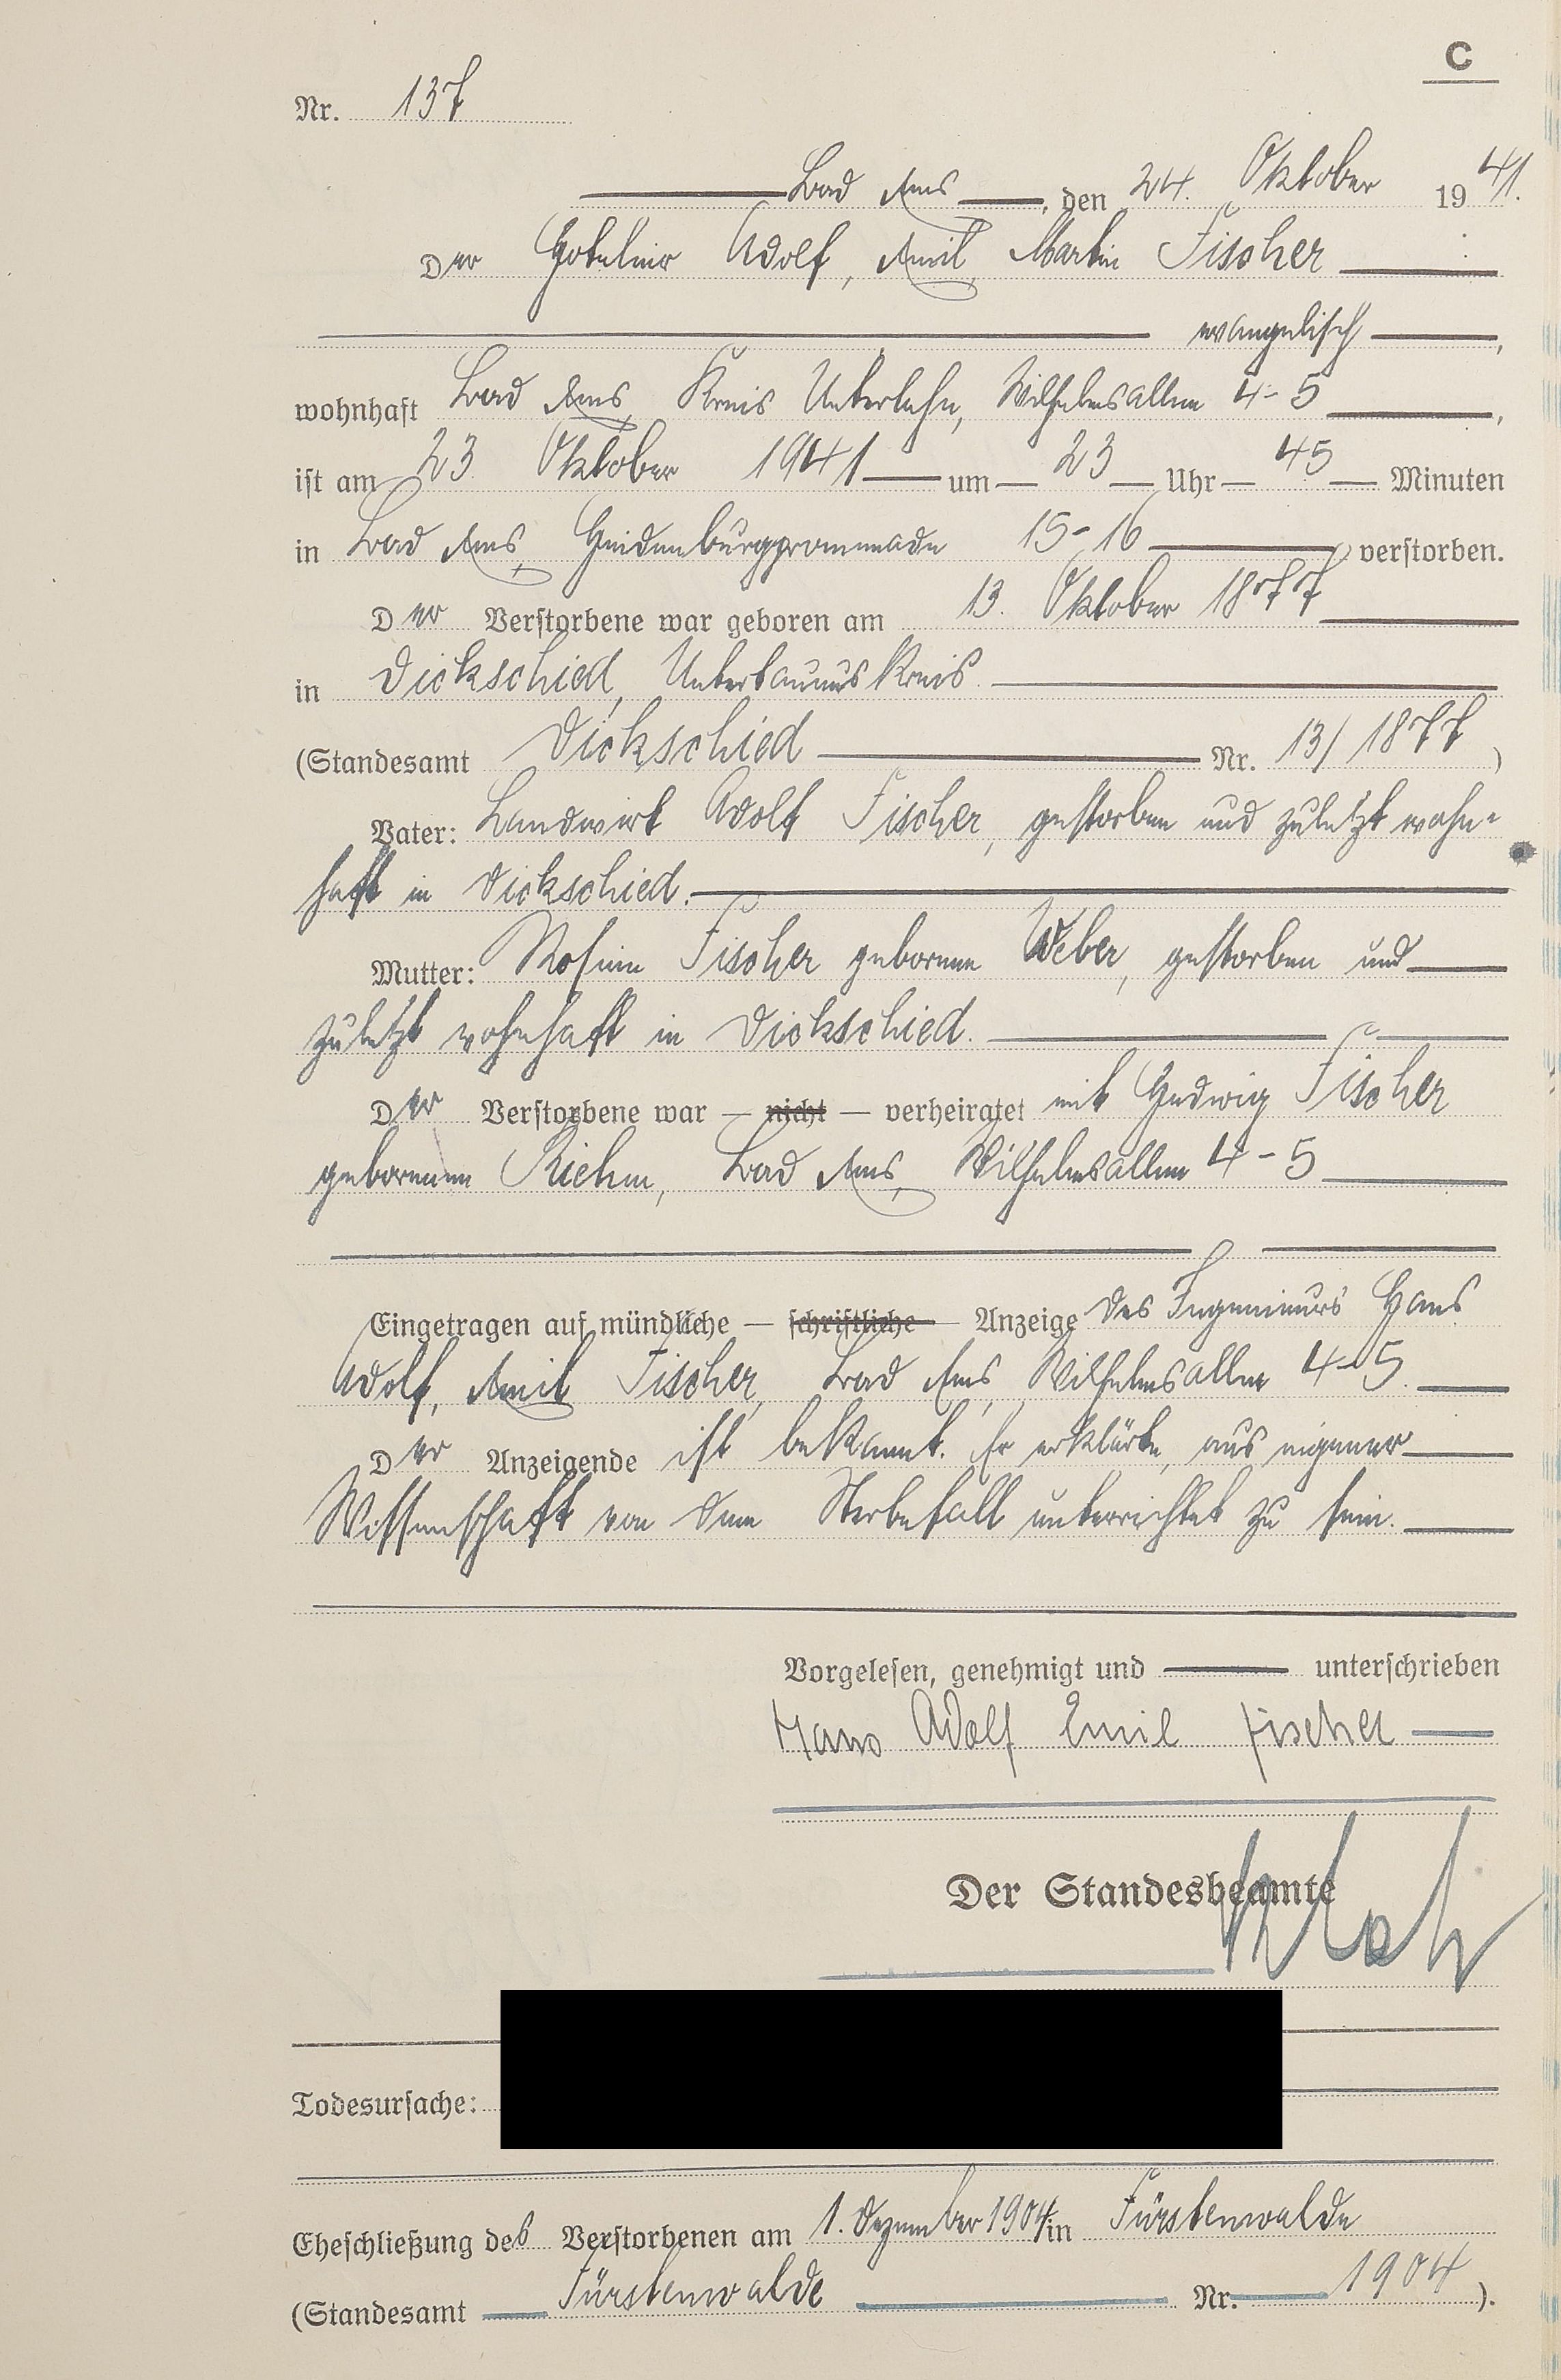 C
Nr. 137
Bad Ems, den 24. Oktober 1941.
Der Hotelier Adolf, Emil, Martin Fischer
evangelisch,
wohnhaft Bad Ems, Kreis Unterlahn, Wilhelmsallee 4-5,
ist am 23. Oktober 1941 um 23 Uhr 45 Minuten
in Bad Ems, 15-16 verstorben.
Der Verstorbene war geboren am 13. Oktober 1877
in Dickschied, Untertaunuskreis
(Standesamt Dickschied Nr. 13/1877)
Vater: Landwirt Adolf Fischer, gestorben und zuletzt wohn-
haft in Dickschied.
Mutter: Rosine Fischer geborene Weber, gestorben und
zuletzt wohnhaft in Dickschied.
Der Verstorbene war — nicht — verheiratet mit Hedwig Fischer
geborenen Riehm, Bad Ems, Wilhelmsallee 4-5
Eingetragen auf mündliche — schriftliche — Anzeige des Ingenieurs Hans
Adolf, Emil Fischer, Bad Ems, Wilhelmsallee 4-5.
Der Anzeigende ist bekannt. Er erklärte, aus eigener
Wissenschaft von dem Sterbefall unterrichtet zu sein.
Vorgelesen, genehmigt und unterschrieben
Hans Adolf Emil Fischer
Der Standesbeamte
Todesursache:
Eheschließung des Verstorbenen am 1. Dezember 1904 in Fürstenwalde
(Standesamt Fürstenwalde Nr. 1904).